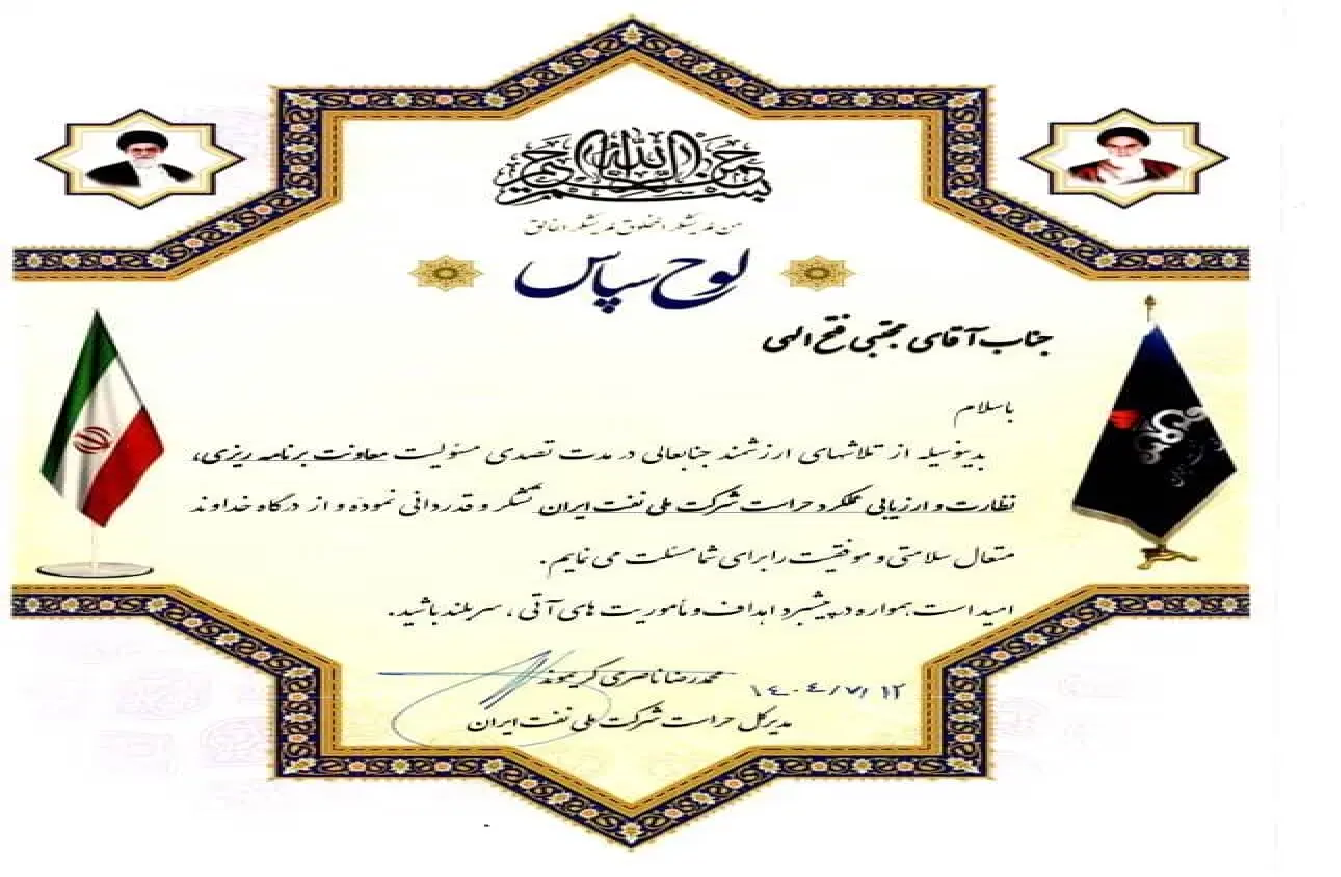 بسم الله الرحمن الرحیم
من لم یشکر المخلوق لم یشکر الخالق
لوح سپاس
جناب آقای مجتبی فتح الهی
باسلام
بدینوسیله از تلاشهای ارزشمند جنابعالی در مدت تصدی مسئولیت معاونت برنامه ریزی،
نظارت و ارزیابی عملکرد حراست شرکت ملی نفت ایران تشکر و قدردانی نموده و از درگاه خداوند
متعال سلامتی و موفقیت را برای شما مسئلت می نمایم.
امید است همواره در پیشبرد اهداف و مأموریت های آتی، سربلند باشید.
محمدرضا ناصری کریموند
۱۴۰۴/۷/۱۲
مدیرکل حراست شرکت ملی نفت ایران